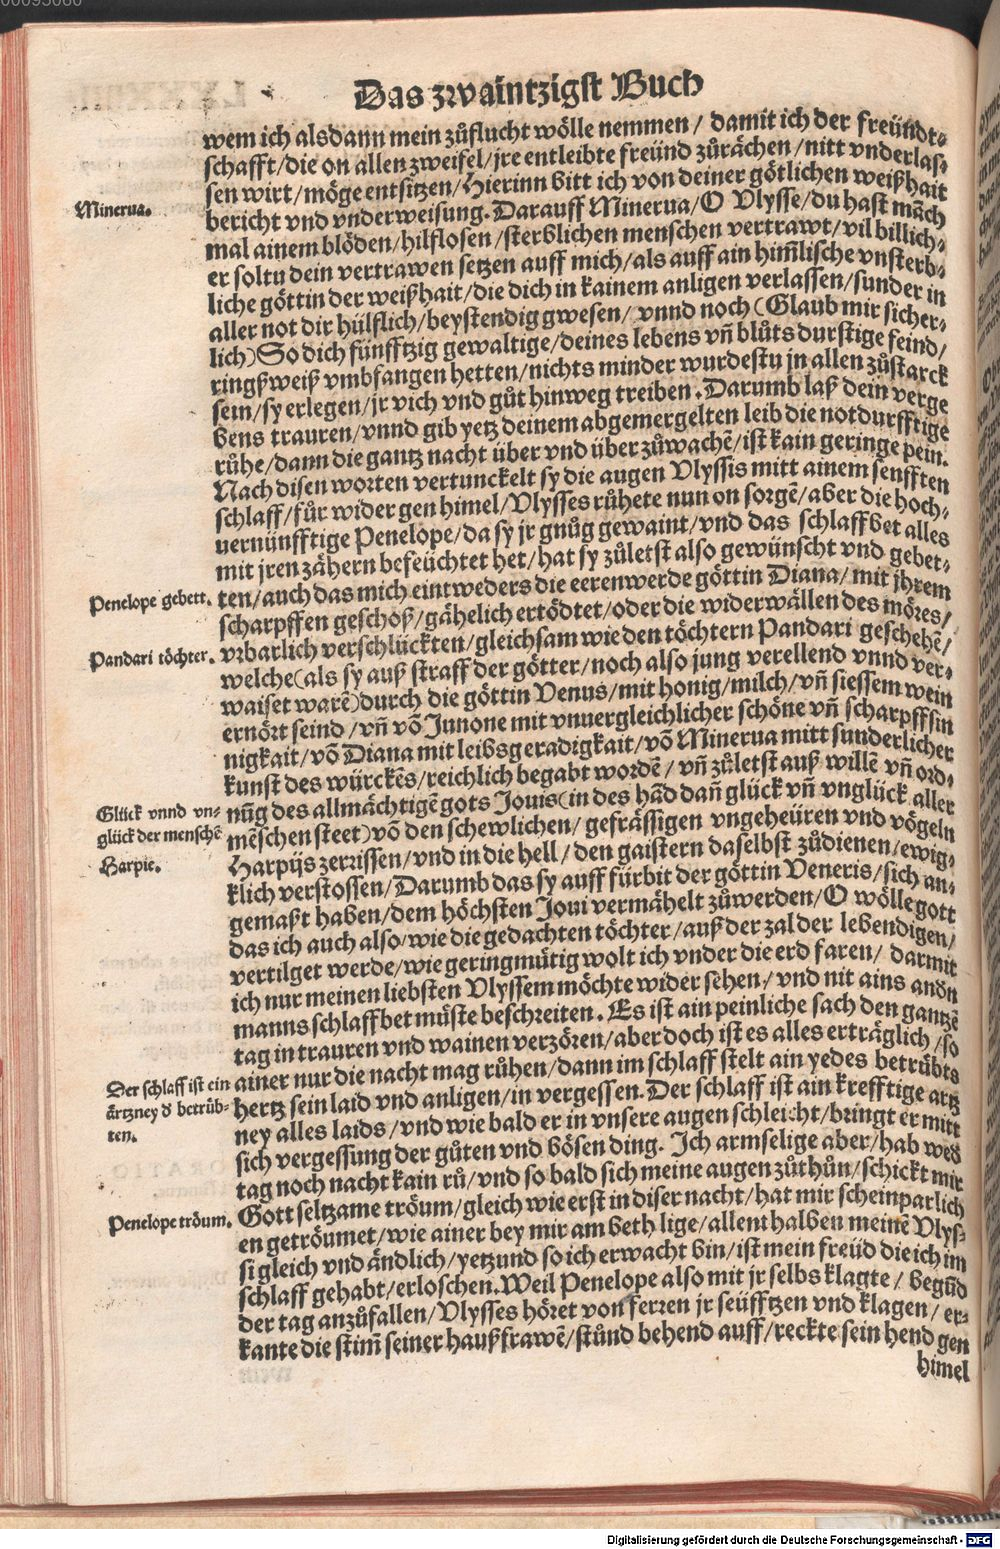 00095080
Das zwaintzigst Buch
wem ich alsdann mein zůflucht wölle nemmen / damit ich der freündt-
schafft / die on allen zweifel / jre entleibte freünd zůrächen / nitt vnderlas-
sen wirt / möge entsitzen / Hierinn bitt ich von deiner götlichen weißhait
Minerua.
bericht vnd vnderweisung. Darauff Minerua / O Vlysse / du hast mãch
mal ainem blöden / hilflosen / sterblichen menschen vertrawt / vil billich-
er soltu dein vertrawen setzen auff mich / als auff ain him̃lische vnsterb-
liche göttin der weißhait / die dich in kainem anligen verlassen / sunder in
aller not dir hülflich / beystendig gwesen / vnnd noch (Glaub mir sicher-
lich) So dich fünfftzig gewaltige / deines lebens vñ blůts durstige feind /
ringßweiß vmbfangen hetten / nichts minder wurdestu jn allen zůstarck
sein / sy erlegen / jr vich vnd gůt hinweg treiben. Darumb laß dein verge
bens trauren / vnnd gib yetz deinem abgemergelten leib die notdurfftige
růhe / dann die gantz nacht über vnd über zůwachẽ / ist kain geringe pein.
Nach disen worten vertunckelt sy die augen Vlyssis mitt ainem senfften
schlaff / fůr wider gen himel / Vlysses růhete nun on sorgẽ / aber die hoch-
uernünfftige Penelope / da sy jr gnůg gewaint / vnd das schlaffbet alles
mit jren zähern befeüchtet het / hat sy zůletst also gewünscht vnd gebet-
Penelope gebett.
ten / auch das mich eintweders die eerenwerde göttin Diana / mit jhrem
scharpffen geschoß / gähelich ertödtet / oder die widerwällen des möres /
Pandari töchter.
vrbarlich verschlückten / gleichsam wie den töchtern Pandari geschehẽ /
welche (als sy auß straff der götter / noch also jung verellend vnnd ver-
waiset warẽ) durch die göttin Venus / mit honig / milch / vñ siessem wein
ernört seind / vñ võ Junone mit vnuergleichlicher schöne vñ scharpffsin
nigkait / võ Diana mit leibsgeradigkait / võ Minerua mitt sunderlicher
kunst des würckẽs / reichlich begabt wordẽ / vñ zůletst auß willẽ vñ ord-
Glück vnnd vn-
glück der menschẽ
nũg des allmächtigẽ gots Jouis (in des hãd dañ glück vñ vnglück aller
mẽschen steet) võ den schewlichen / gefrässigen vngeheüren vnd vögeln
Harpie.
Harpijs zerrissen / vnd in die hell / den gaistern daselbst zůdienen / ewig-
klich verstossen / Darumb das sy auff fürbit der göttin Veneris / sich an-
gemaßt haben / dem höchsten Joui vermähelt zůwerden / O wölle gott
das ich auch also / wie die gedachten töchter / auß der zal der lebendigen /
vertilget werde / wie geringmütig wolt ich vnder die erd faren / darmit
ich nur meinen liebsten Vlyssem möchte wider sehen / vnd nit ains andn
manns schlaffbet müste beschreiten. Es ist ain peinliche sach den gantzẽ
tag in trauren vnd wainen verzören / aber doch ist es alles erträglich / so
Der schlaff ist ein
ärtzney d betrüb-
ten.
ainer nur die nacht mag růhen / dann im schlaff stelt ain yedes betrübts
hertz sein laid vnd anligen / in vergessen. Der schlaff ist ain krefftige artz
ney alles laids / vnd wie bald er in vnsere augen schleicht / bringt er mitt
sich vergessung der gůten vnd bösen ding. Ich armselige aber / hab wed
tag noch nacht kain rů / vnd so bald sich meine augen zůthůn / schickt mir
Penelope tröum.
Gott seltzame tröum / gleich wie erst in diser nacht / hat mir scheinparlich
en getröumet / wie ainer bey mir am beth lige / allenthalben meinẽ Vlys-
si gleich vnd ändlich / yetzund so ich erwacht bin / ist mein freüd die ich im
schlaff gehabt / erloschen. Weil Penelope also mit jr selbs klagte / begũd
der tag anzůfallen / Vlysses höret von ferren jr seüfftzen vnd klagen / er-
kante die stim̃ seiner haußfrawẽ / stůnd behend auff / reckte sein hend gen
himel
Digitalisierung gefördert durch die Deutsche Forschungsgemeinschaft - DFG